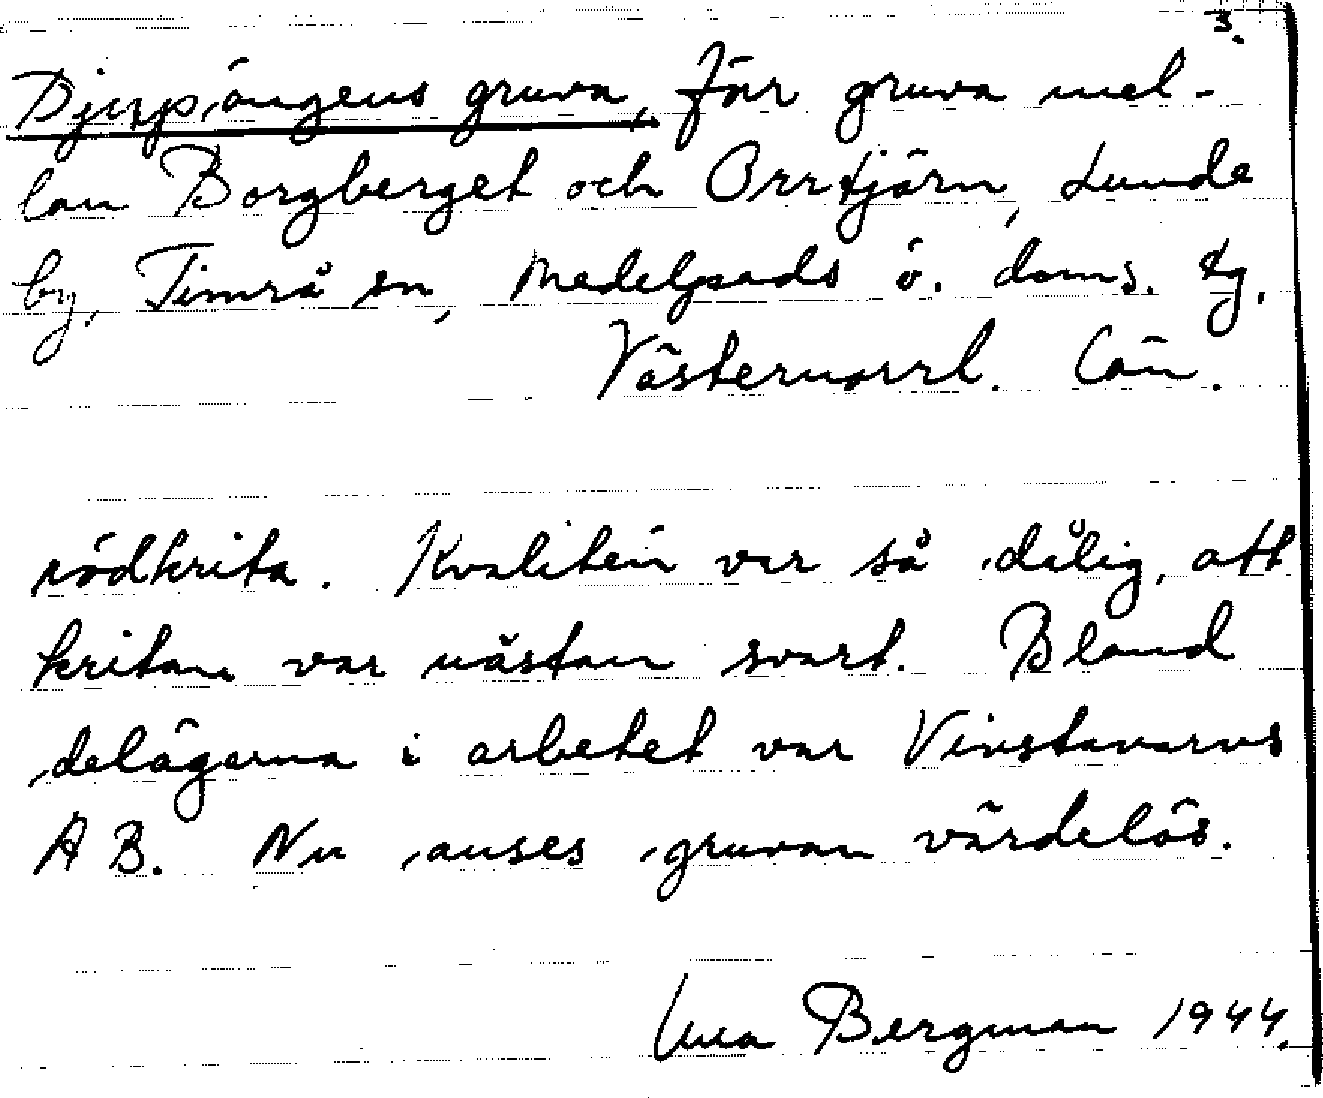 3.
Djupängens gruva, för gruva mel-
lan Borgberget och Orrtjärn, Lunde
by, Timrå sn, Medelpads ö. doms. tg.
Västernorrl. län.
rödkrita. Kvalitén var så dålig, att
kritan var nästan svart. Bland
delägarna i arbetet var Vivstavarvs
AB. Nu anses gruvan värdelös.
Bergman 1944.